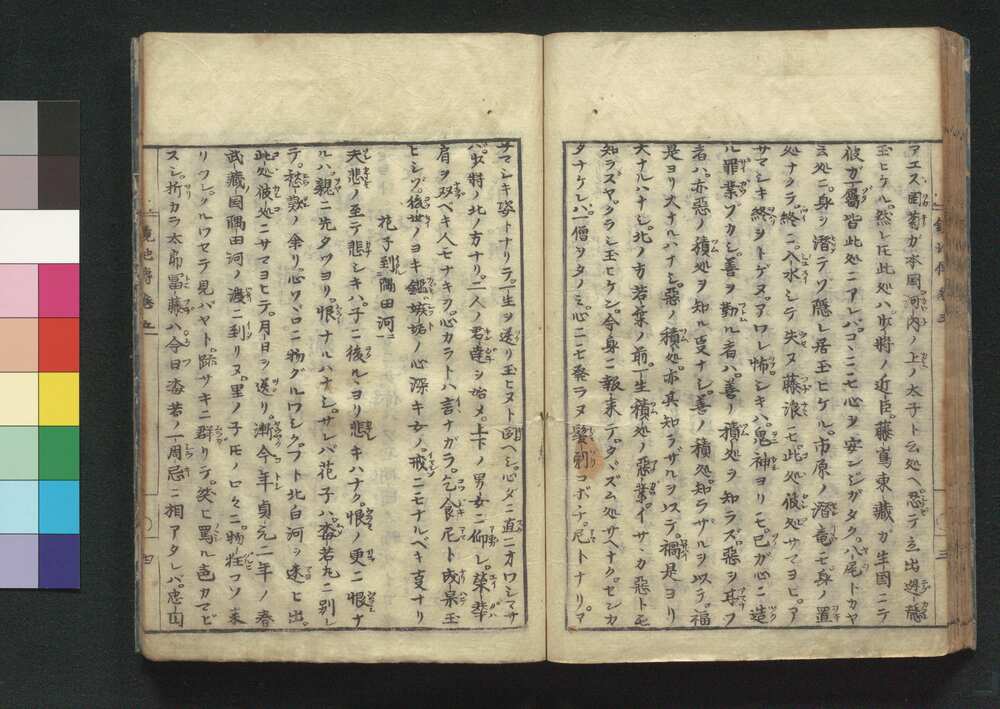 アエス園菊ガ本国河内ノ上ノ太子ト云処ヘ忍テ立出遊隠
玉ヒケル然レ𪜈此処ハ少将ノ近臣藤嵩東蔵ガ生国ニテ
彼ガ一属皆此処ニアレバコヽニモ心ヲ安ンジガタク八尾トカヤ
云処ニ身ヲ潜テゾ隠レ居玉ヒケル市原ノ潜竜モ身ノ置
処ナクテ終ニ入水シテ失ヌ藤浪モ此処彼処サマヨヒテア
サマシキ終ヲトゲヌアワレ怖シキハ鬼神ヨリニモ己ガ心ニ造
ル罪業ゾカシ善ヲ勤ル者ハ善ノ積処ヲ知ラズ悪ヲ其フ
者ハ亦悪ノ積処ヲ知ル叓ナシ善ノ積処知ラサルヲ以テ福
是ヨリ大ナルハナシ悪ノ積処亦其知ラザルヲ以テ禍是ヨリ
大ナルハナシ北ノ方若葉ノ前一生積処ノ悪業イサヽカ悪トモ
知ラズヤアラン玉ヒケン今身ニ報来テタヽズム処サヘナクセンカ
タナケレバ一僧ヲタノミ心ニモ発ラヌ鬢剃コボチ尼トナリア
サマシキ姿トナリテ一生ヲ送リ玉ヒヌト図ヘシ心ダニ直ニオワシマサ
バ少将ノ北ノ方ナリ二人ノ君達ヲ始メ上下ノ男女ニ仰レ栄華
肩ヲ双ベキ人モナキヲ心カラトハ言ナガラ乞食尼ト成果玉
ヒシゾ後世ノヨキ鑑嫉妬ノ心深キ女ノ戒ニモナルベキ叓ナリ
花子到隅田河
夫悲ノ至テ悲シキハ子ニ後ルヽヨリ悲キハナク恨ノ更ニ恨ナ
ルハ親ニ先タツヨリ恨ナルハナシサレバ花子ハ梅若丸ニ別レ
テ愁歎ノ余リ心ソヾロニ物グルワシクゾト北白河ヲ迷ヒ出
此処彼処ニサマヨヒテ月日ヲ送リ漸今年貞元二年ノ春
武蔵国隅田河ノ渡ニ到リヌ里ノ子𪜈ノ口々ニ物狂コソ来
リツレクルワセテ見バヤト跡サキニ群リテ笑ヒ罵ル色カマビ
スシ折カラ太郎冨藤ハ今日梅若ノ一周忌ニ相アタレバ忠円